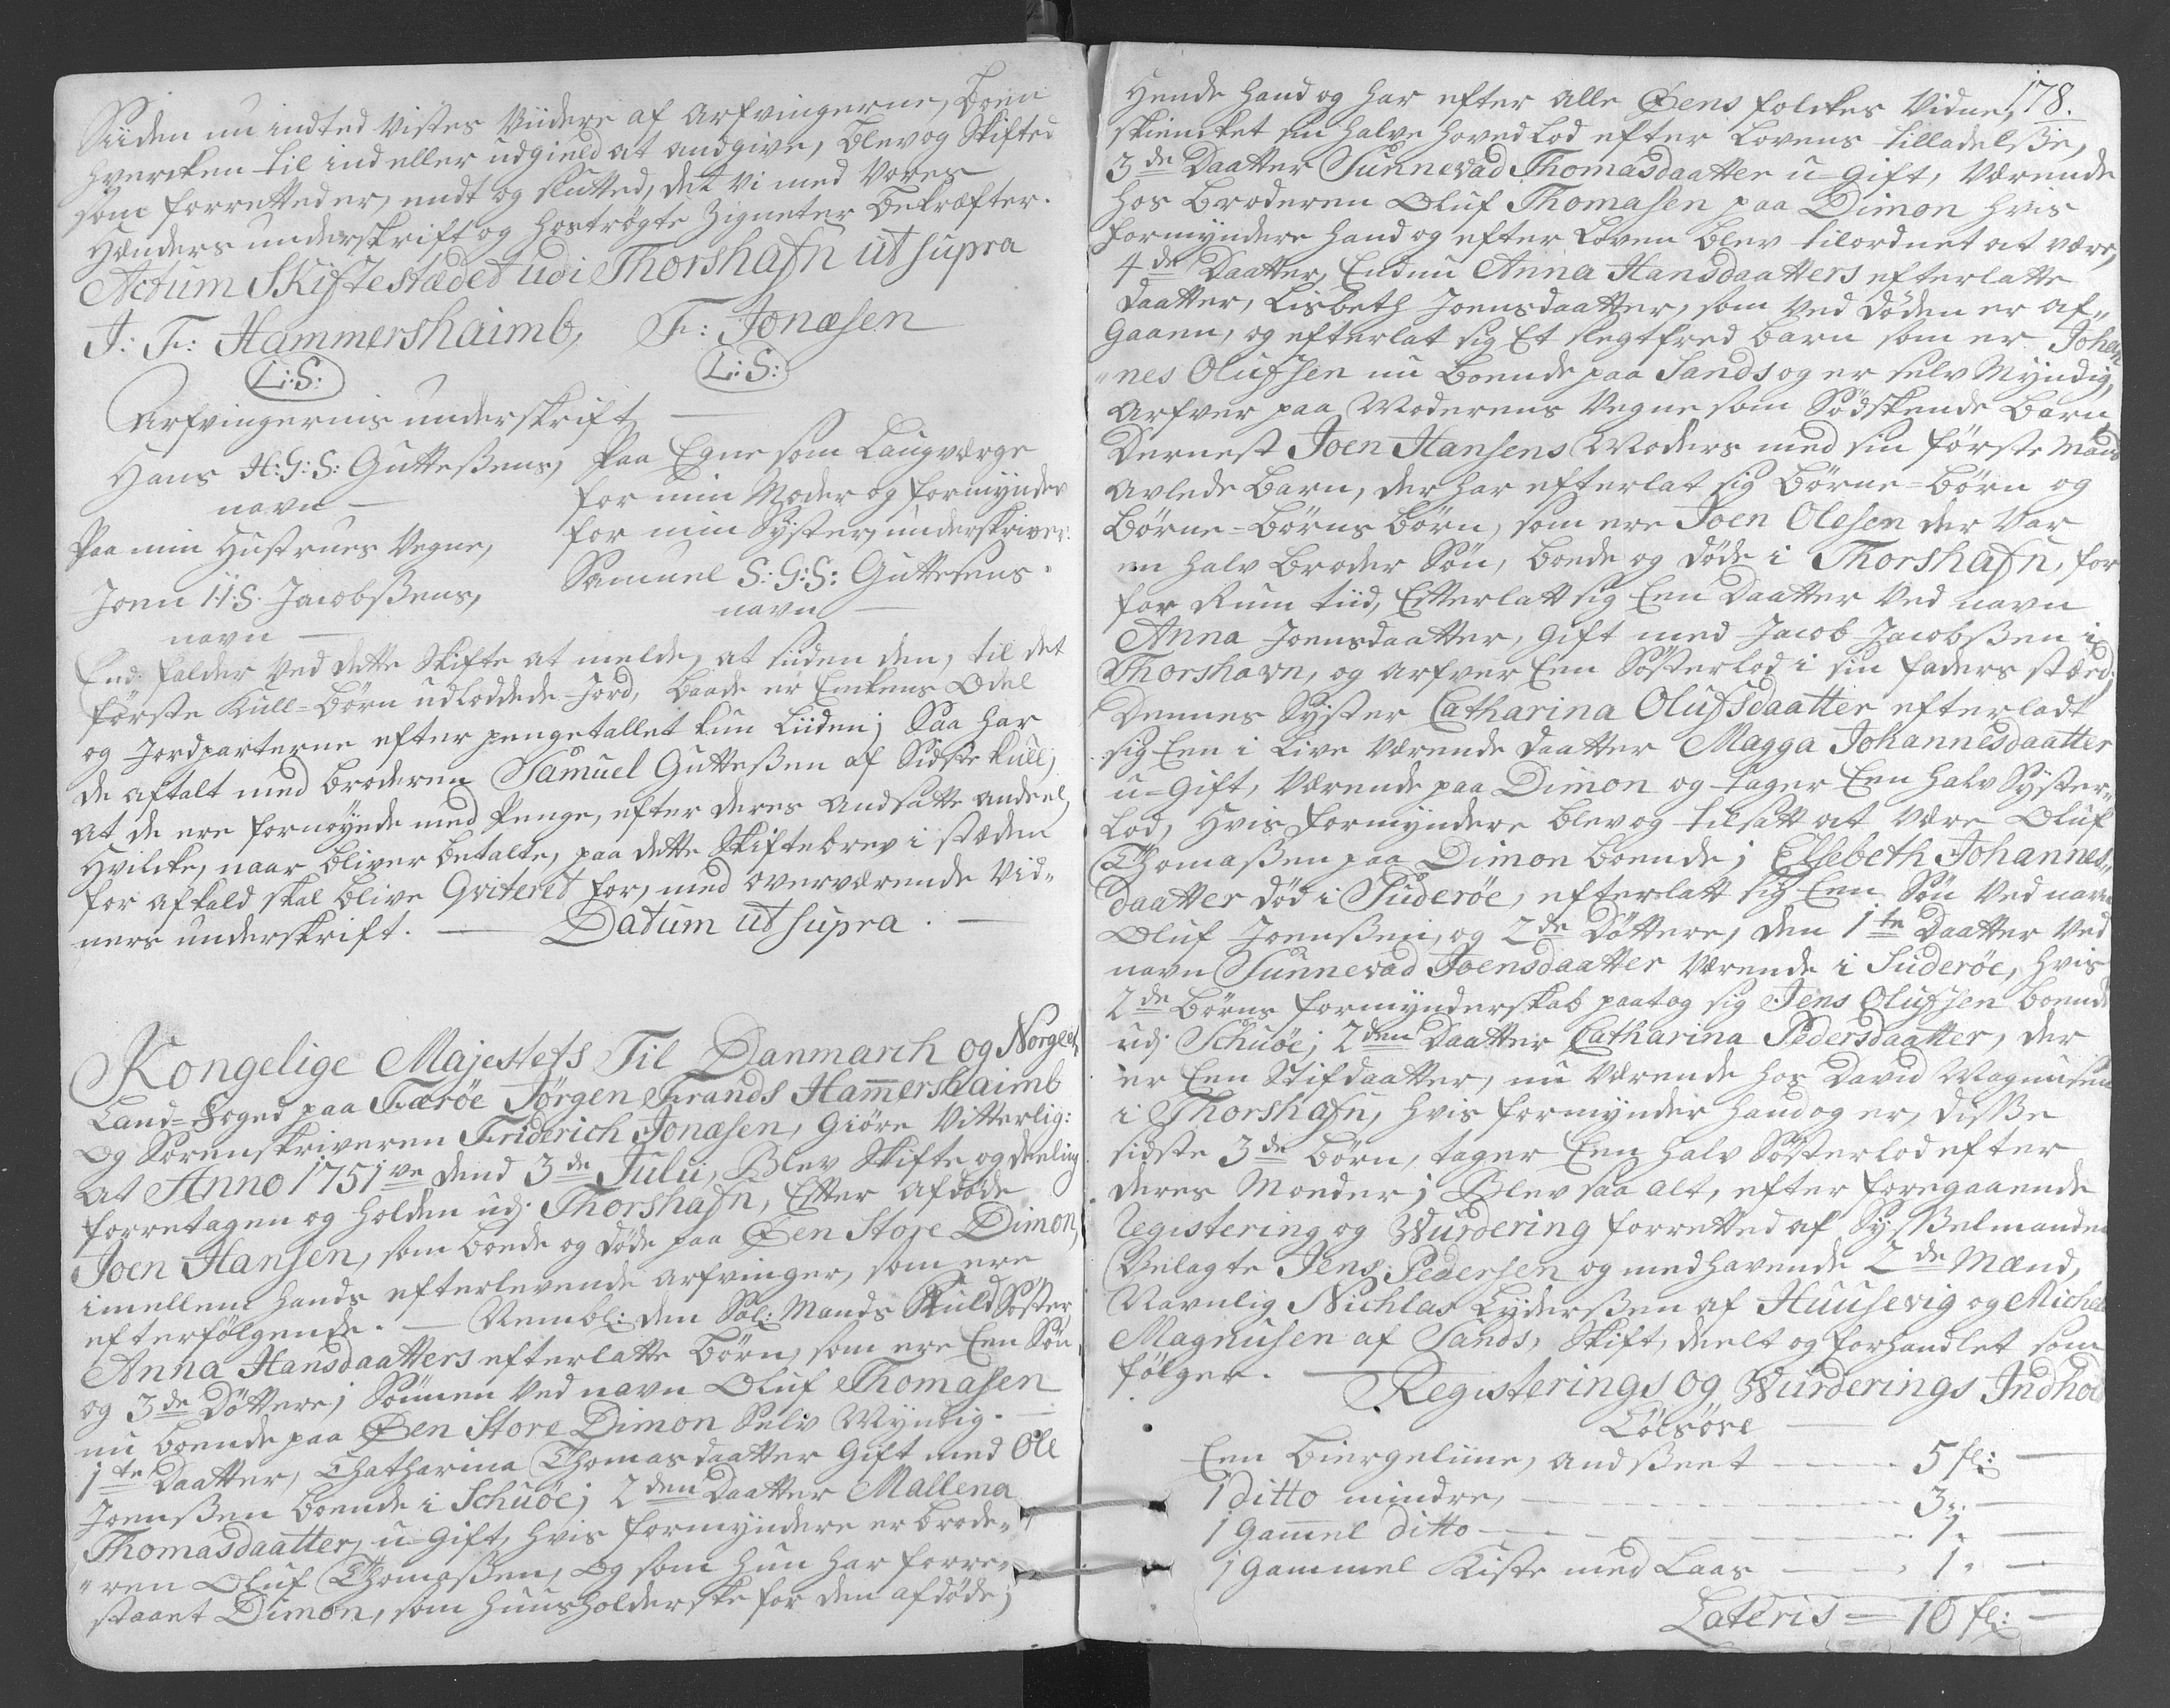 Siiden nu indted vistes viidere af Arfvingerne, boen
hvercken til ind eller udgield at andgive, blev og Skifted
som forretted er, endt og sluttet, det vi med vores
Hænders underskrift og hoströgte Zigneter bekræfter.
Actum Skiftestædet udi Thorshafn ut supra
J: F: Hammershaimb, F: Jonæsen
L:S: L:S:
Arfvingernis underskrift
Hans H:G:S: Guttesens,
navn
Paa min Hustrues Vegne,
Joen I:I:S: Jacobsens,
navn
Paa Egne som Laugværge
for min Moder og formynder
for min Syster, underskriver
Samuel S:G:S: Guttesens
navn
End falder ved dette Skifte at melde, at siiden den, til det
förste Kuld-Börn udloddede Jord, baade er Enkens Odel
og Jordparterne efter pengetallet kun liiden; Saa har
de aftalt med broderen Samuel Guttesen af Sidste kuld,
at de ere fornöyede med Penge, efter deres andsatte andeel,
Hvilcke, naar bliver betalte, paa dette Skiftebrev i stæden
for afkald skal blive Qviteret for, med overværende Vid-
ners underskrift. Datum ut supra.
Kongelige Majestets Til Danmarch og Norges,
Land-Foged paa Færöe Jörgen Frands Hammershaimb
og Sorenskriveren Friderich Jonæsen, Giöre Vitterlig:
at Anno 1751 ve dend 3 de Julii, Blev Skifte og deeling
forretagen og holden udj Thorshafn, Efter afdöde
Joen Hansen, som boede og döde paa Öen Store Dimon,
imellem hands efterlevende arfvinger, som ere
efterfölgende. Nembl: den Sal: Mands Kuld Söster,
Anna Hansdaatters efterlatte börn, som ere Een Sön,
og 3 de Döttere; Sönnen ved navn Oluf Thomasen
nu boende paa Öen Store Dimon Selv Myndig.
1 te Daatter, Chatharina Thomasdaatter Gift med Ole
Joensen boende i Schuöe; 2 den Daatter Mallena
Thomasdaatter, u-Gift, hvis formyndere er brode-
ren Oluf Thomasen, og som hun har forre-
staaet Dimon, som huusholderske for den afdöde;
178.
Hende hand og har efter alle Öens folckes Vidne,
skiencket sin halve hoved Lod efter Lovens tilladelse,
3 de Daatter Sunnevad Thomasdaatter u-Gift, Værende
hos broderen Oluf Thomasen paa Dimon hvis
formyndere hand og efter Loven blev tilordnet at være,
4 de Daatter, Endnu Anna Hansdaatters efterlatte
daatter, Lisbeth Joensdaatter, som ved döden er af-
gaaen, og efterlat sig Et slegtfred barn som er Johan
nes Olufsen nu boende paa Sands og er selv Myndig,
Arfver paa Moderens Vegne som Södskende barn
Dernest Joen Hansens Moders med sin förste Mand
avlede barn, der har efterlat sig börne-börn og
börne-börns börn, som ere Joen Olesen der var
en halv broder Sön, boede og döde i Thorshafn, for
for Rum tiid, Efterlatt sig Een Daatter ved navn
Anna Joensdaatter, gift med Jacob Jacobsen i
Thorshavn, og arfver Een Söster lod i sin faders stæd,
Dennes Syster Catharina Olufsdaatter efterladt
sig Een i Live værende daatter Magga Johannesdaatter
u-Gift, værende paa Dimon og tager Een halv Syster-
lod, hvis formyndere blev og tilsatt at være Oluf
Thomasen paa Dimon boende; Elsebeth Johannes-
daatter död i Suderöe, efterlatt sig Een Sön ved navn
Oluf Joensen, og 2 de Döttere, den 1 te Daatter ved
navn Sunnevad Joensdaatter værende i Suderöe, hvis
2 de börns formynderskab paatog sig Jens Olufsen boende
udj Schuöe; 2 den Daatter Catharina Pedersdaatter, der
er Een Stifdaatter, nu værende hos David Magnusen
i Thorshafn, hvis formynder hand og er, disse
sidste 3 de börn, tager Een halv Söster lod efter
deres Moeder; Blev saa alt, efter foregaaende
Registering og Wurdering forretted af Sysselmanden
Velagte Jens Pedersen og medhavende 2 de Mænd,
Navnlig Nichlas Lydersen af Huusevig og Michel
Magnusen af Sands, Skift, deelt og forhandlet som
fölger. Registerings og Wurderings Indhold
Lösöre
Een biergeliine, andseet 5 fl:
1 ditto mindre, 3.
1 Gammel ditto 1.
1 gammel Kiste med Laas 1.
Lateris 10 fl: